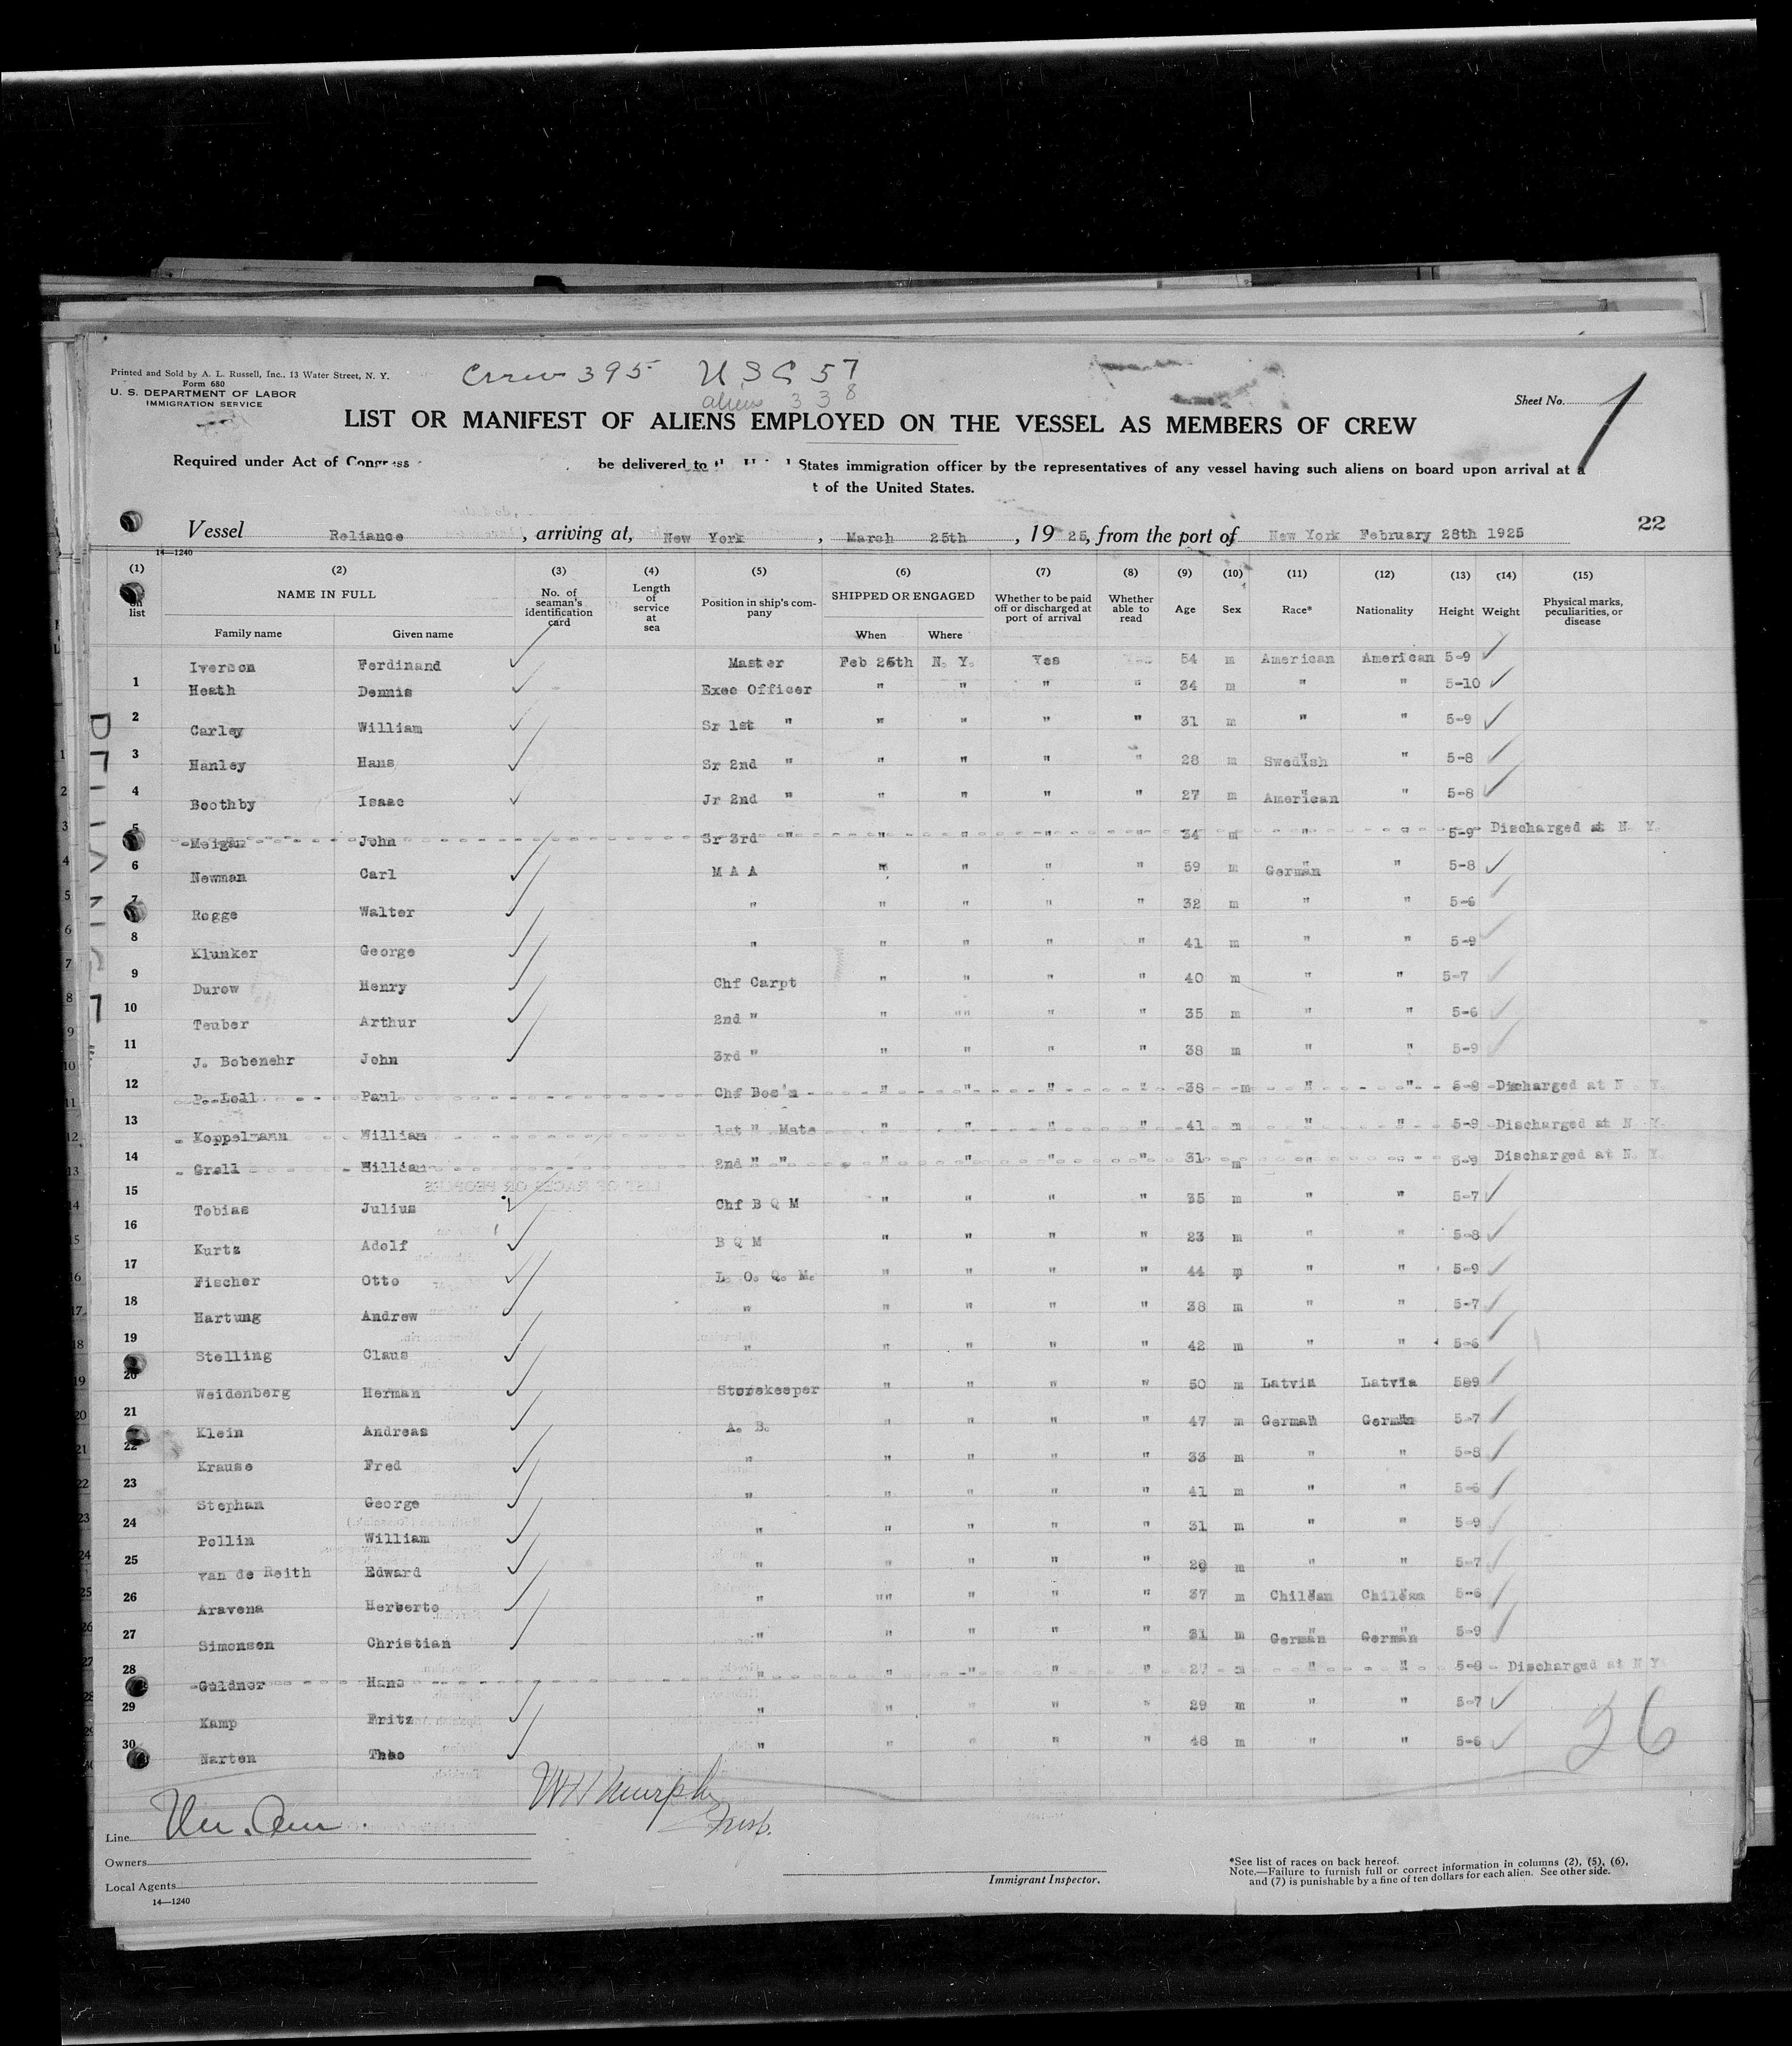 Crew 395 USC 57
aliens 338
Printed and Sold by A. L. Russell, Inc., 13 Water Street, N. Y.
Form 680
U. S. DEPARTMENT OF LABOR
IMMIGRATION SERVICE
Sheet No. 1
LIST OR MANIFEST OF ALIENS EMPLOYED ON THE VESSEL AS MEMBERS OF CREW
Required under Act of Congress be delivered to States immigration officer by the representatives of any vessel having such aliens on board upon arrival at a
t of the United States.
22
Vessel Reliance , arriving at, New York , March 25th , 19 25, from the port of New York February 28th 1925
14—1240
(1) (2) (3) (4) (5) (6) (7) (8) (9) (10) (11) (12) (13) (14) (15)
on list NAME IN FULL Family name Given name No. of seaman's identification card Length of service at sea Position in ship's company SHIPPED OR ENGAGED When Where Whether to be paid off or discharged at port of arrival Whether able to read Age Sex Race* Nationality Height Weight Physical marks, peculiarities, or disease
Iverson Ferdinand Master Feb 26th N. Y. Yes Yes 54 m American American 5-9
1 Heath Dennis Exec Officer " " " " 34 m " " 5-10
2 Carley William Sr 1st " " " " " 31 m " " 5-9
3 Hanley Hans Sr 2nd " " " " " 28 m Swedish " 5-8
4 Boothby Isaac Jr 2nd " " " " " 27 m American " 5-8
5 Meigan John Sr 3rd " " " " " 34 m " " 5-9 Discharged at N. Y.
6 Newman Carl M A A " " " " 59 m German " 5-8
7 Rogge Walter " " " " " 32 m " " 5-6
8 Klunker George " " " " " 41 m " " 5-9
9 Durow Henry Chf Carpt " " " " 40 m " " 5-7
10 Teuber Arthur 2nd " " "" " " 35 m " " 5-6
11 J. Bobenehr John 3rd " " " " " 38 m " " 5-9
12 P. Loll Paul Chf Bos'n " " " " 38 m " " 5-8 Discharged at N. Y.
13 Koppelmann William 1st " Mate " " " " 41 m " " 5-9 Discharged at N. Y.
14 Grell William 2nd " " " " " " 31 m " " 5-9 Discharged at N. Y.
15 Tobias Julius Chf B Q M " " " " 35 m " " 5-7
16 Kurtz Adolf B Q M " " " " 23 m " " 5-8
17 Fischer Otto L. O. Q. M. " " " " 44 m " " 5-9
18 Hartung Andrew " " " " " 38 m " " 5-7
19 Stelling Claus " " " " " 42 m " " 5-6
20 Weidenberg Herman Storekeeper " " " " 50 m Latvia Latvia 5-9
21 Klein Andreas A. B. " " " " 47 m German German 5-7
22 Krause Fred " " " " " 33 m " " 5-8
23 Stephan George " " " " " 41 m " " 5-6
24 Pollin William " " " " " 31 m " " 5-9
25 van de Reith Edward " " " " " 29 m " " 5-7
26 Aravena Herberto " "" " " " 37 m Chilean Chilean 5-6
27 Simonsen Christian " " " " " 31 m German German 5-9
28 Guldner Hans " " " " " 27 m " " 5-8 Discharged at N Y.
29 Kamp Fritz " " " " " 29 m " " 5-7
30 Narten Theo " " " " " 48 m " " 5-6
26
W H Murphy
Insp.
Line
Owners
Local Agents
14—1240
Immigrant Inspector.
*See list of races on back hereof.
Note.—Failure to furnish full or correct information in columns (2), (5), (6),
and (7) is punishable by a fine of ten dollars for each alien. See other side.